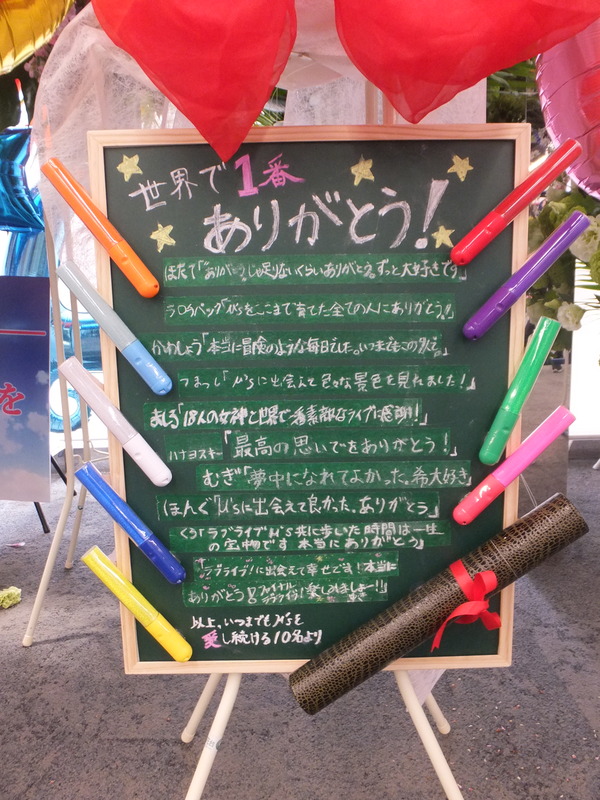 世界で1番
ありがとう!
ほたて「"ありがとう。じゃ足りないくらいありがとう。ずっと大好きです」
ラロラバッグ「μ'sをここまで育てた全ての人にありがとう。」
かわしょう「本当に冒険のような毎日でした。いつまでもこの
つまっし「μ'sに出会えて色々な景色を見れました!」
「18人の女神と世界で1番素敵なライブに感謝!!」
ハナヨスキー「最高の思いでをありがとう!」
むぎ"「夢中になれてよかった。希大好き」
ほんぐ「μ'sに出会えて良かった。ありがとう」
くろ「ラブライブμ's共に歩いた時間は一生
の宝物です 本当にありがとう」
「ラブライブ!に出会えて幸せです!本当に
ありがとう!ファイナルラブライブ!楽しみましょー!!」
以上、いつまでもμ'sを
愛し続ける10名より
を